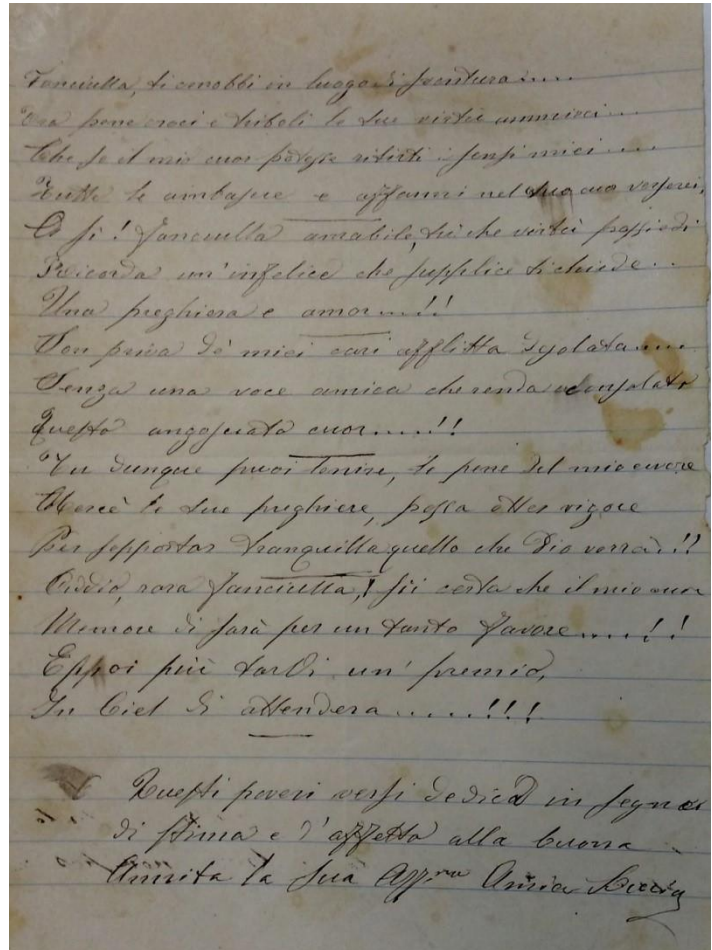 Fanciulla, ti conobbi in luogo di sventura.....
Tra pene croci e triboli le tue virtù ammirai...
Che se il mio cuor potesse ridirti i sensi miei....
Tutte le ambasce e affanni nel tuo cuo verserei.
O sì! fanciulla amabile, tu che virtù possiedi
Ricorda un'infelice che supplice ti chiede...
Una preghiera e amor....!!
Son priva de' miei cari afflitta desolata.....
Senza una voce amica che renda consolato
Questo angosciato cuor.....!!
Tu dunque puoi lenire, le pene del mio cuore
Mercè le tue preghiere, possa otter vigore
Per soppottar tranquilla quello che Dio vorrà!!
Addio, cara fanciulla,! sii certa che il mio cuor
Memore ti sarà per un tanto favore.....!!
Eppoi più tardi un' premio,
In Ciel ti attenderà.....!!!
Questi poveri versi dedica in segno
di stima e d'affetto alla buona
Annita la sua Affma Amica